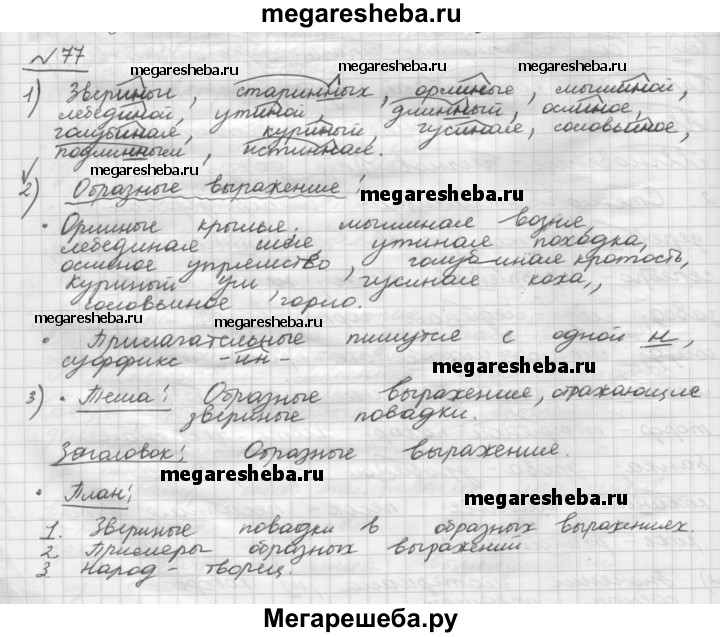 megaresheba.ru
№77
megaresheba.ru megaresheba.ru
1) Звериные, старинных, орлиные, мышиной,
лебединой, утиной, длинный, ослиное,
голубиная, куриный, гусиная, соловьиное,
подлинным, истинная.
megaresheba.ru
2) Образные выражение:
megaresheba.ru
• Орлиные крылья, мышиная возня,
лебединая шея, утиная походка,
ослиное упрямство, голубиная кротость,
куриный ум, гусиная кожа,
соловьиное горло.
megaresheba.ru megaresheba.ru
• Прилагательные пишутся с одной н,
суффикс -ин-
megaresheba.ru
3) • Тема: Образные выражение, отражающие
звериные повадки.
Заголовок: Образные выражение.
megaresheba.ru
• План:
megaresheba.ru
1. Звериные повадки в образных выражениях.
2. Примеры образных выражений.
3 Народ - творец.
Мегарешеба.ру